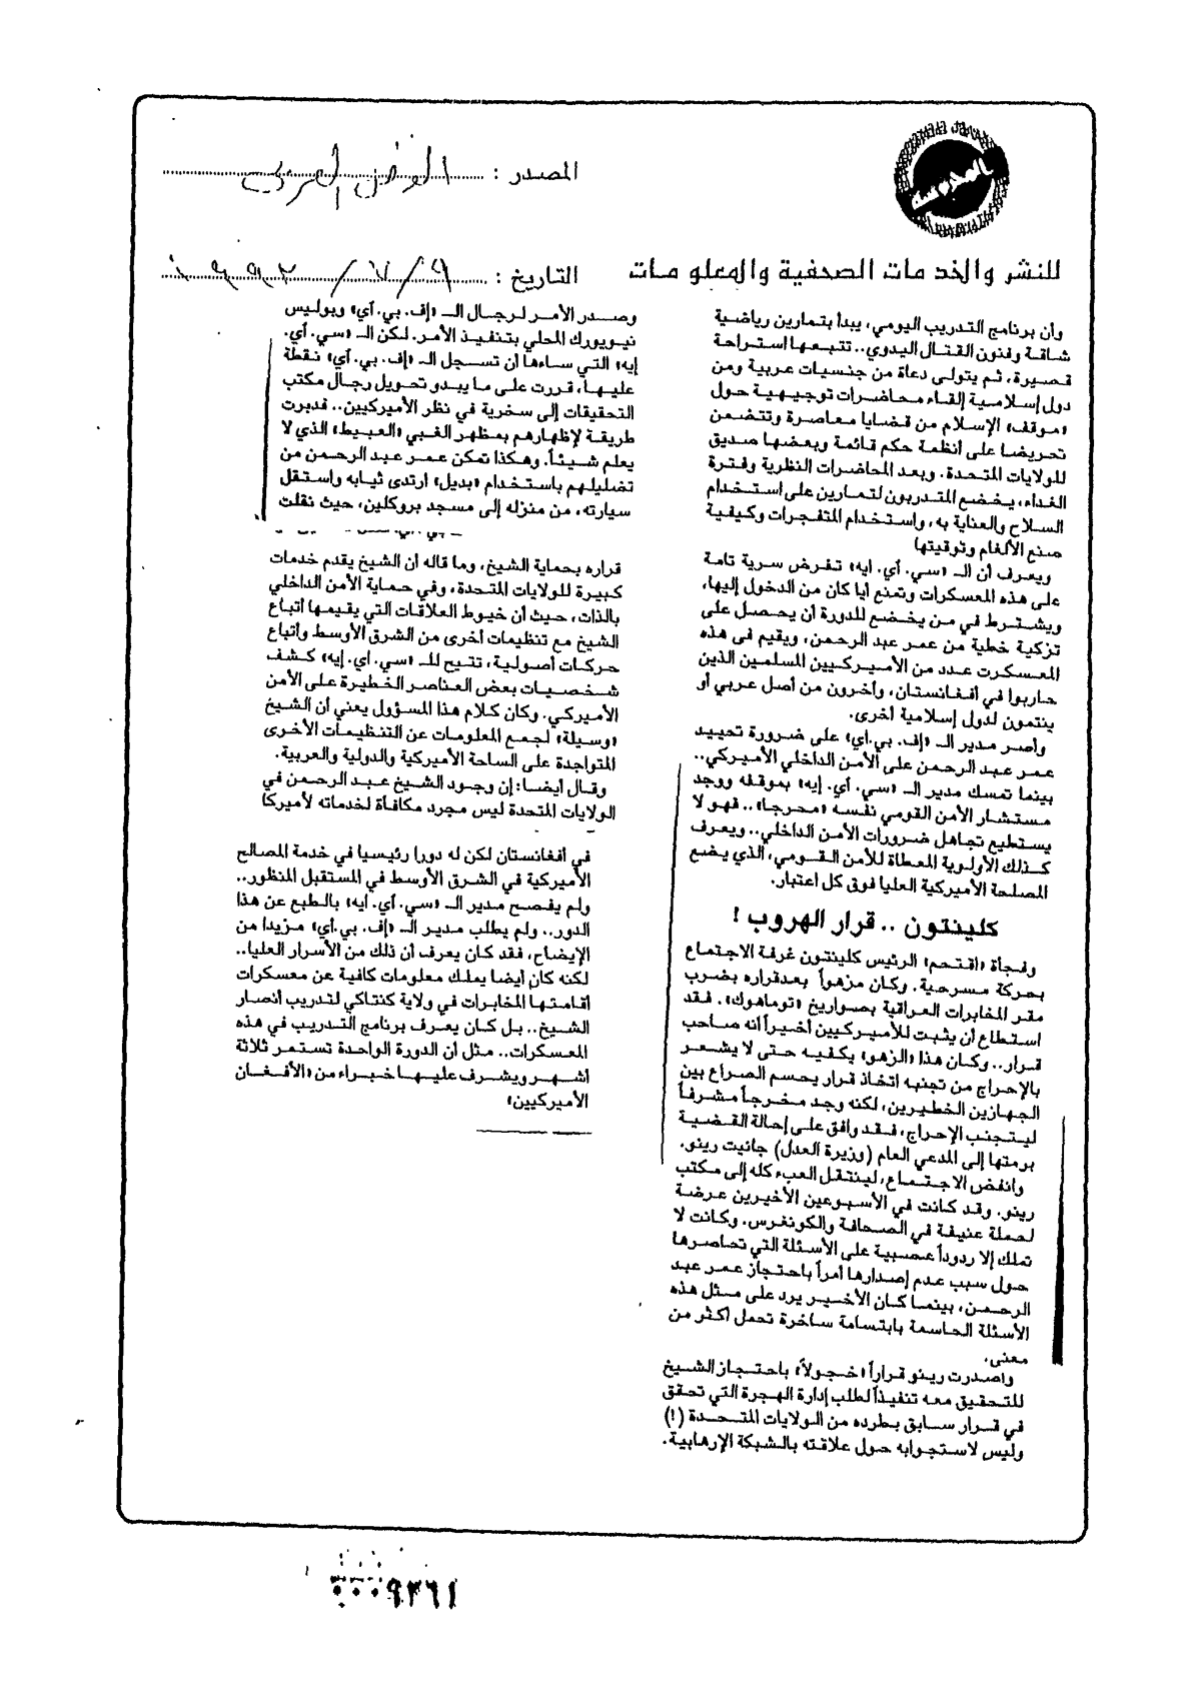 المحروسة
للنشر والخدمات الصحفية والمعلومات
المصدر : الوطن العربي
التاريخ : ٩ / ٧ / ١٩٩٣
وأن برنامج التدريب اليومي، يبدأ بتمارين رياضية
شاقة وفنون القتال اليدوي.. تتبعها استراحة
قصيرة، ثم يتولى دعاة من جنسيات عربية ومن
دول إسلامية إلقاء محاضرات توجيهية حول
«موقف» الإسلام من قضايا معاصرة وتتضمن
تحريضا على أنظمة حكم قائمة وبعضها صديق
للولايات المتحدة. وبعد المحاضرات النظرية وفترة
الغداء، يخضع المتدربون لتمارين على استخدام
السلاح والعناية به، واستخدام المتفجرات وكيفية
صنع الألغام وتوقيتها
ويعرف أن الـ «سي. أي. ايه» تفرض سرية تامة
على هذه المعسكرات وتمنع أيا كان من الدخول إليها،
ويشترط في من يخضع للدورة أن يحصل على
تزكية خطية من عمر عبد الرحمن، ويقيم في هذه
المعسكرت عدد من الأميركيين المسلمين الذين
حاربوا في أفغانستان، وأخرون من أصل عربي أو
ينتمون لدول إسلامية أخرى.
وأصر مدير الـ «إف. بي.أي» على ضرورة تحييد
عمر عبد الرحمن على الأمن الداخلي الأميركي..
بينما تمسك مدير الـ «سي. أي. إيه» بموقفه ووجد
مستشار الأمن القومي نفسه «محرجا».. فهو لا
يستطيع تجاهل ضرورات الأمن الداخلي.. ويعرف
كذلك الأولوية المعطاة للأمن القومي، الذي يضع
المصلحة الأميركية العليا فوق كل اعتبار.
كلينتون .. قرار الهروب !
وفجأة «اقتحم» الرئيس كلينتون غرفة الاجتماع
بحركة مسرحية. وكان مزهواً بعدقراره بضرب
مقر المخابرات العراقية بصواريخ «توماهوك». فقد
استطاع أن يثبت للأميركيين أخيراً أنه صاحب
قرار.. وكان هذا «الزهو» يكفيه حتى لا يشعر
بالإحراج من تجنبه اتخاذ قرار يحسم الصراع بين
الجهازين الخطيرين، لكنه وجد مخرجاً مشرفاً
ليتجنب الإحراج، فقد وافق على إحالة القضية
برمتها إلى المدعي العام (وزيرة العدل) جانيت رينو.
وانفض الاجتماع، لينتقل العبء كله إلى مكتب
رينو. وقد كانت في الأسبوعين الأخيرين عرضة
لحملة عنيفة في الصحافة والكونغرس. وكانت لا
تملك إلا ردوداً عصبية على الأسئلة التي تحاصرها
حول سبب عدم إصدارها أمراً باحتجاز عمر عبد
الرحمن، بينما كان الأخير يرد على مثل هذه
الأسئلة الحاسمة بابتسامة ساخرة تحمل أكثر من
معنى.
وأصدرت رينو قراراً «خجولاً» باحتجاز الشيخ
للتحقيق معه تنفيذاً لطلب إدارة الهجرة التي تحقق
في قرار سابق بطرده من الولايات المتحدة (!)
وليس لاستجوابه حول علاقته بالشبكة الإرهابية.
وصدر الأمر لرجال الـ «إف. بي. أي» وبوليس
نيويورك المحلي بتنفيذ الأمر. لكن الـ «سي. أي.
إيه» التي ساءها أن تسجل الـ «إف. بي. أي» نقطة
عليها، قررت على ما يبدو تحويل رجال مكتب
التحقيقات إلى سخرية في نظر الأميركيين.. فدبرت
طريقة لإظهارهم بمظهر الغبي «العبيط» الذي لا
يعلم شيئاً. وهكذا تمكن عمر عبد الرحمن من
تضليلهم باستخدام «بديل» ارتدى ثيابه واستقل
سيارته، من منزله إلى مسجد بروكلين، حيث نقلت
قراره بحماية الشيخ، وما قاله أن الشيخ يقدم خدمات
كبيرة للولايات المتحدة، وفي حماية الأمن الداخلي
بالذات، حيث أن خيوط العلاقات التي يقيمها أتباع
الشيخ مع تنظيمات أخرى من الشرق الأوسط وأتباع
حركات أصولية، تتيح للـ «سي. أي. إيه» كشف
شخصيات بعض العناصر الخطيرة على الأمن
الأميركي. وكان كلام هذا المسؤول يعني أن الشيخ
«وسيلة» لجمع المعلومات عن التنظيمات الأخرى
المتواجدة على الساحة الأميركية والدولية والعربية.
وقال أيضا: إن وجود الشيخ عبد الرحمن في
الولايات المتحدة ليس مجرد مكافأة لخدماته لأميركا
في أفغانستان لكن له دورا رئيسيا في خدمة المصالح
الأميركية في الشرق الأوسط في المستقبل المنظور..
ولم يفصح مدير الـ «سي. أي. ايه» بالطبع عن هذا
الدور.. ولم يطلب مدير الـ «إف. بي.أي» مزيدا من
الإيضاح، فقد كان يعرف أن ذلك من الأسرار العليا..
لكنه كان أيضا يملك معلومات كافية عن معسكرات
أقامتها المخابرات في ولاية كنتاكي لتدريب أنصار
الشيخ.. بل كان يعرف برنامج التدريب في هذه
المعسكرات.. مثل أن الدورة الواحدة تستمر ثلاثة
أشهر ويشرف عليها خبراء من «الأفغان
الأميركيين»
٠٠٠٩٣٦١